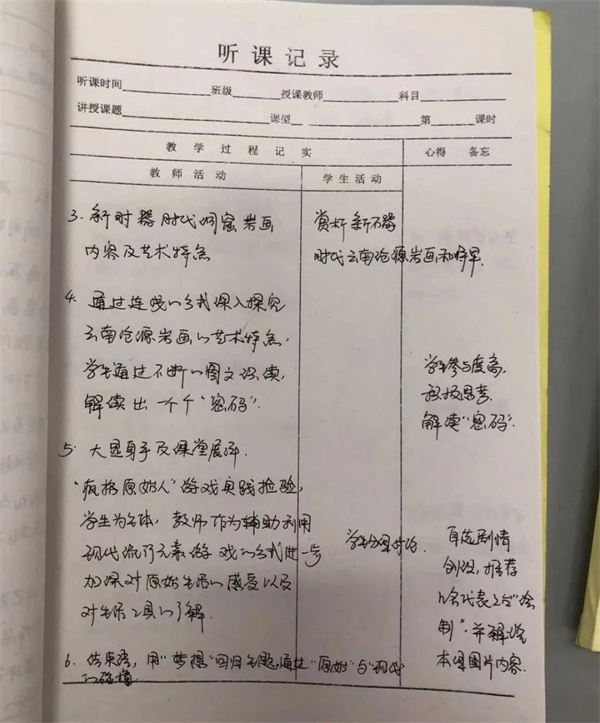 听课记录
听课时间 班级 授课教师 科目
讲授课题 课型 第 课时
教学过程记实 心得 备忘
教师活动 学生活动
3. 新时器时代洞窟岩画
内容及艺术特点
赏析新石器
时代云南沧源岩画和将军
4. 通过连线的方式深入探究
云南沧源岩画的艺术特点,
学生通过不断的图文识读,
解读出一个个“密码”.
学生参与度高,
积极思考
解读“密码”.
5. 大显身手及课堂展评.
“疯狂原始人”游戏实践检验,
学生为主体,教师作为辅助利用
现代流行元素游戏的方式进一步
加深对原始生活的感受以及
对生活工具的了解.
学生分组讨论.
自选剧情
创设,推荐
小组代表上台“绘
制”.并解说
本组图片内容.
6. 结束语,用“梦想”回归主题,通过“原始”与“现代”
的碰撞